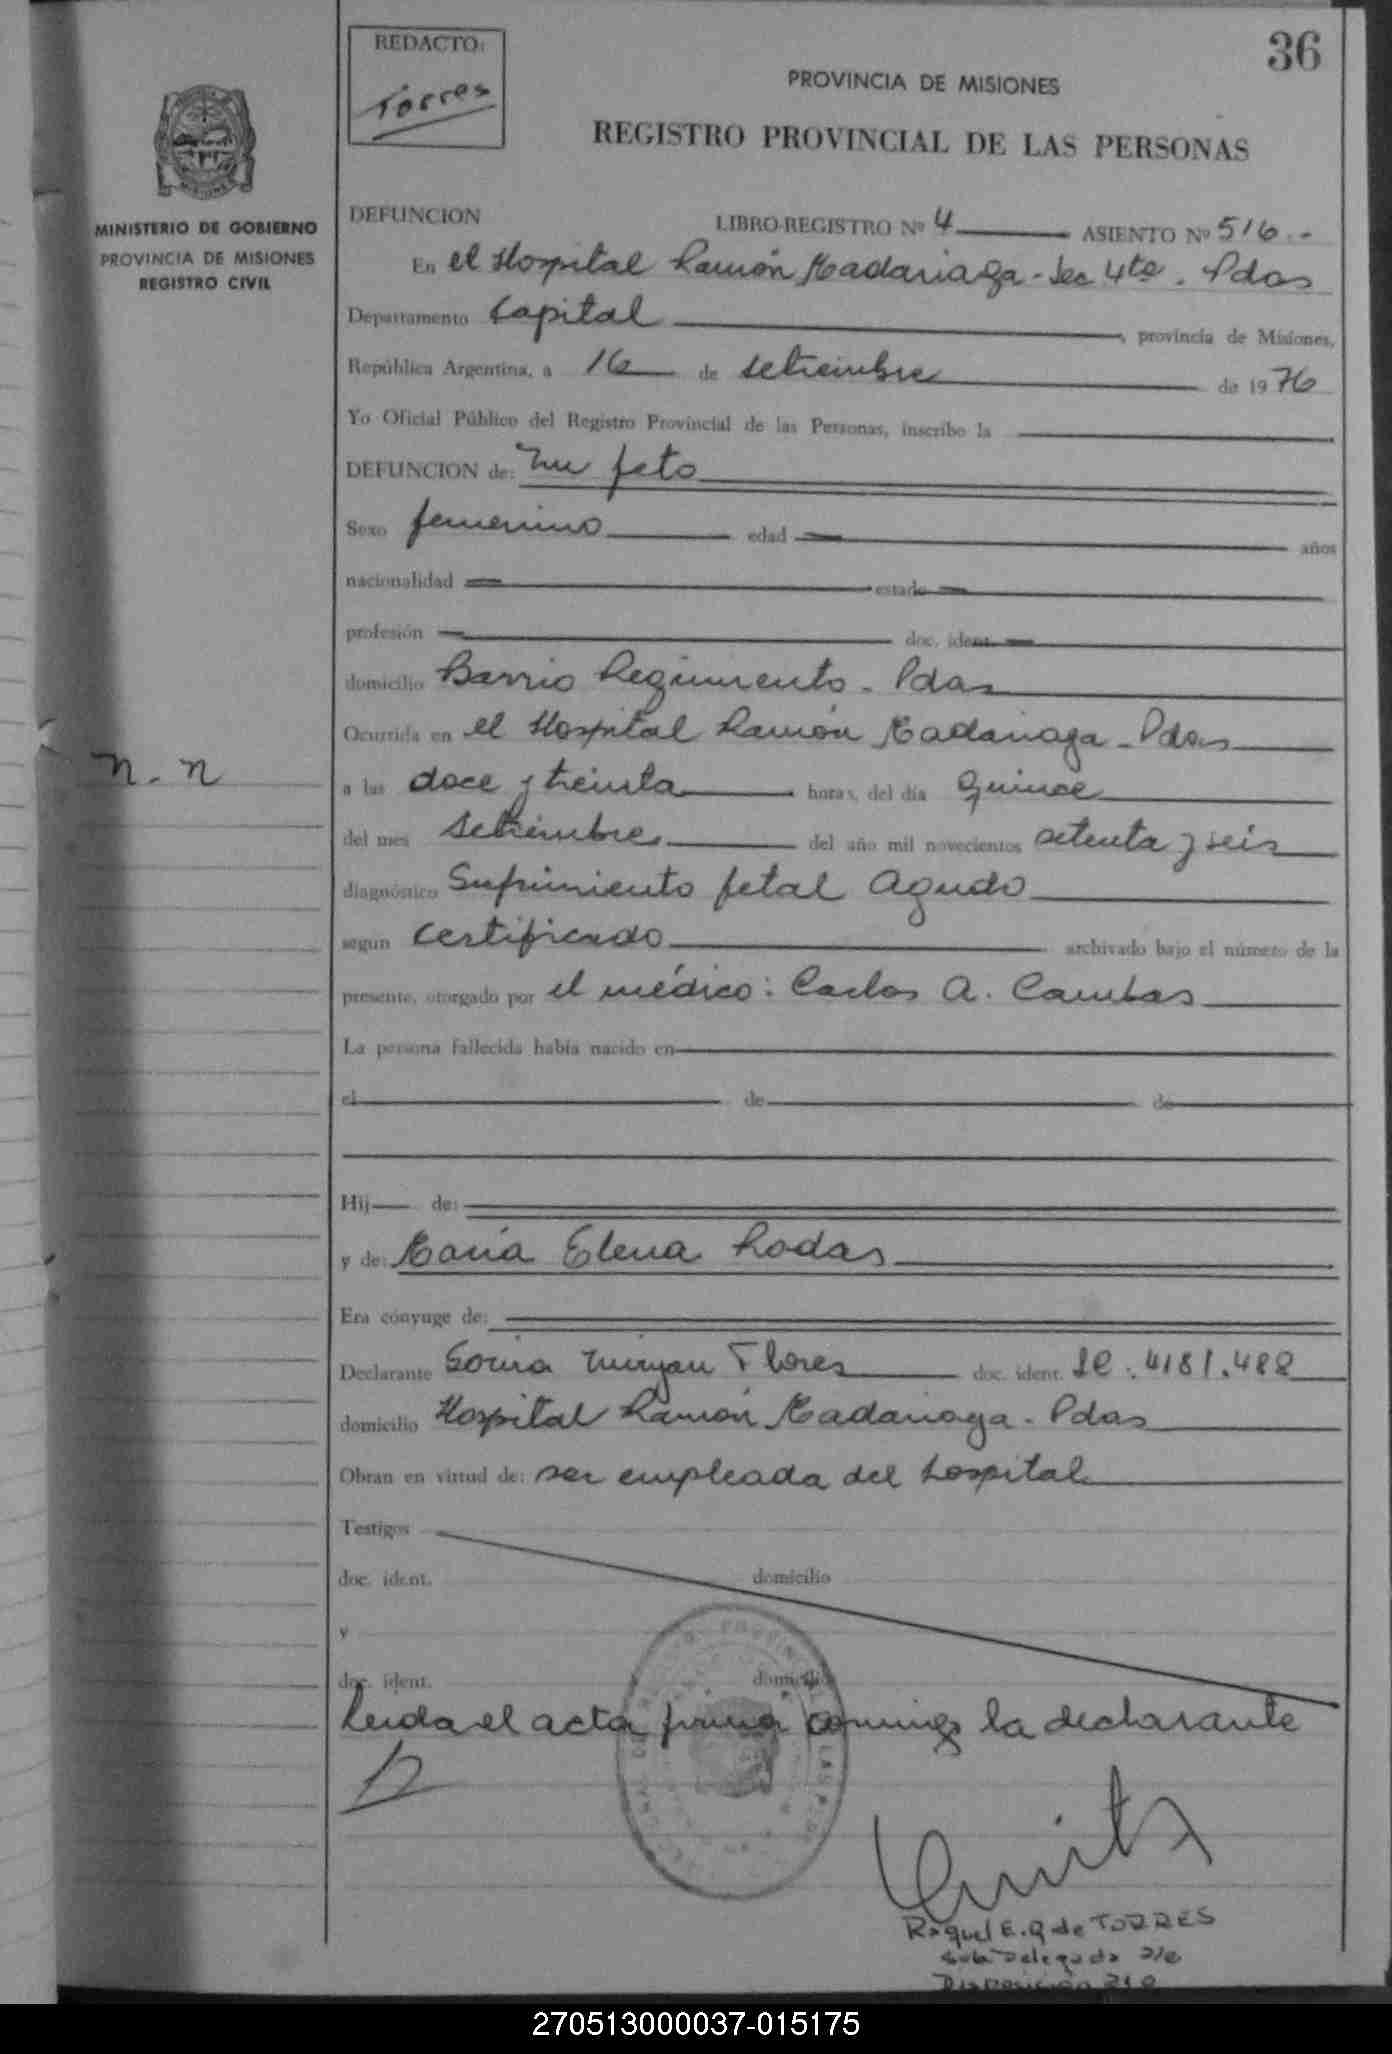 36
REDACTO:
Torres
PROVINCIA DE MISIONES
REGISTRO PROVINCIAL DE LAS PERSONAS
MINISTERIO DE GOBIERNO
PROVINCIA DE MISIONES
REGISTRO CIVIL
DEFUNCION LIBRO-REGISTRO Nº 4 ASIENTO Nº 516.-
En el Hospital Ramón Madariaga - Sec 4ta. Pdas
Departamento Capital, provincia de Misiones,
República Argentina, a 16 de setiembre de 1976
Yo Oficial Público del Registro Provincial de las Personas, inscribo la
DEFUNCION de: Un feto
Sexo femenino edad — años
nacionalidad — estado —
profesión — doc. ident. —
domicilio Barrio Regimiento - Pdas
Ocurrida en el Hospital Ramón Madariaga - Pdas
n. n
a las doce y treinta horas, del día quince
del mes setiembre del año mil novecientos setenta y seis
diagnóstico Sufrimiento fetal agudo
segun certificado archivado bajo el número de la
presente, otorgado por el médico: Carlos A. Cambas
La persona fallecida había nacido en
el de de
Hij de:
y de: María Elena Rodas
Era cónyuge de:
Declarante Sonia Miryan Flores doc. ident. LC. 4181.488
domicilio Hospital Ramón Madariaga - Pdas
Obran en virtud de: ser empleada del hospital
Testigos
doc. ident. domicilio
y
doc. ident. domicilio
Leida el acta firma conmigo la declarante
Raquel E. Q de TORRES
Sub Delegada
Disposición 218
270513000037-015175